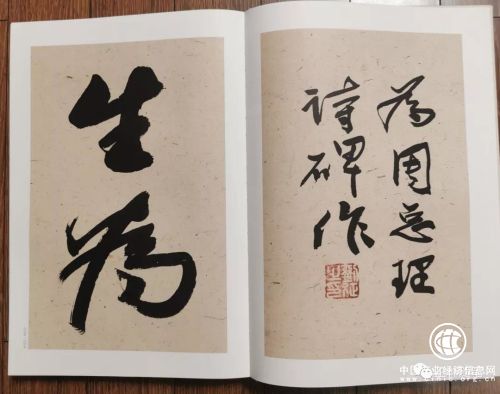 為周总理
诗碑作
生為
中国产业经济信息网